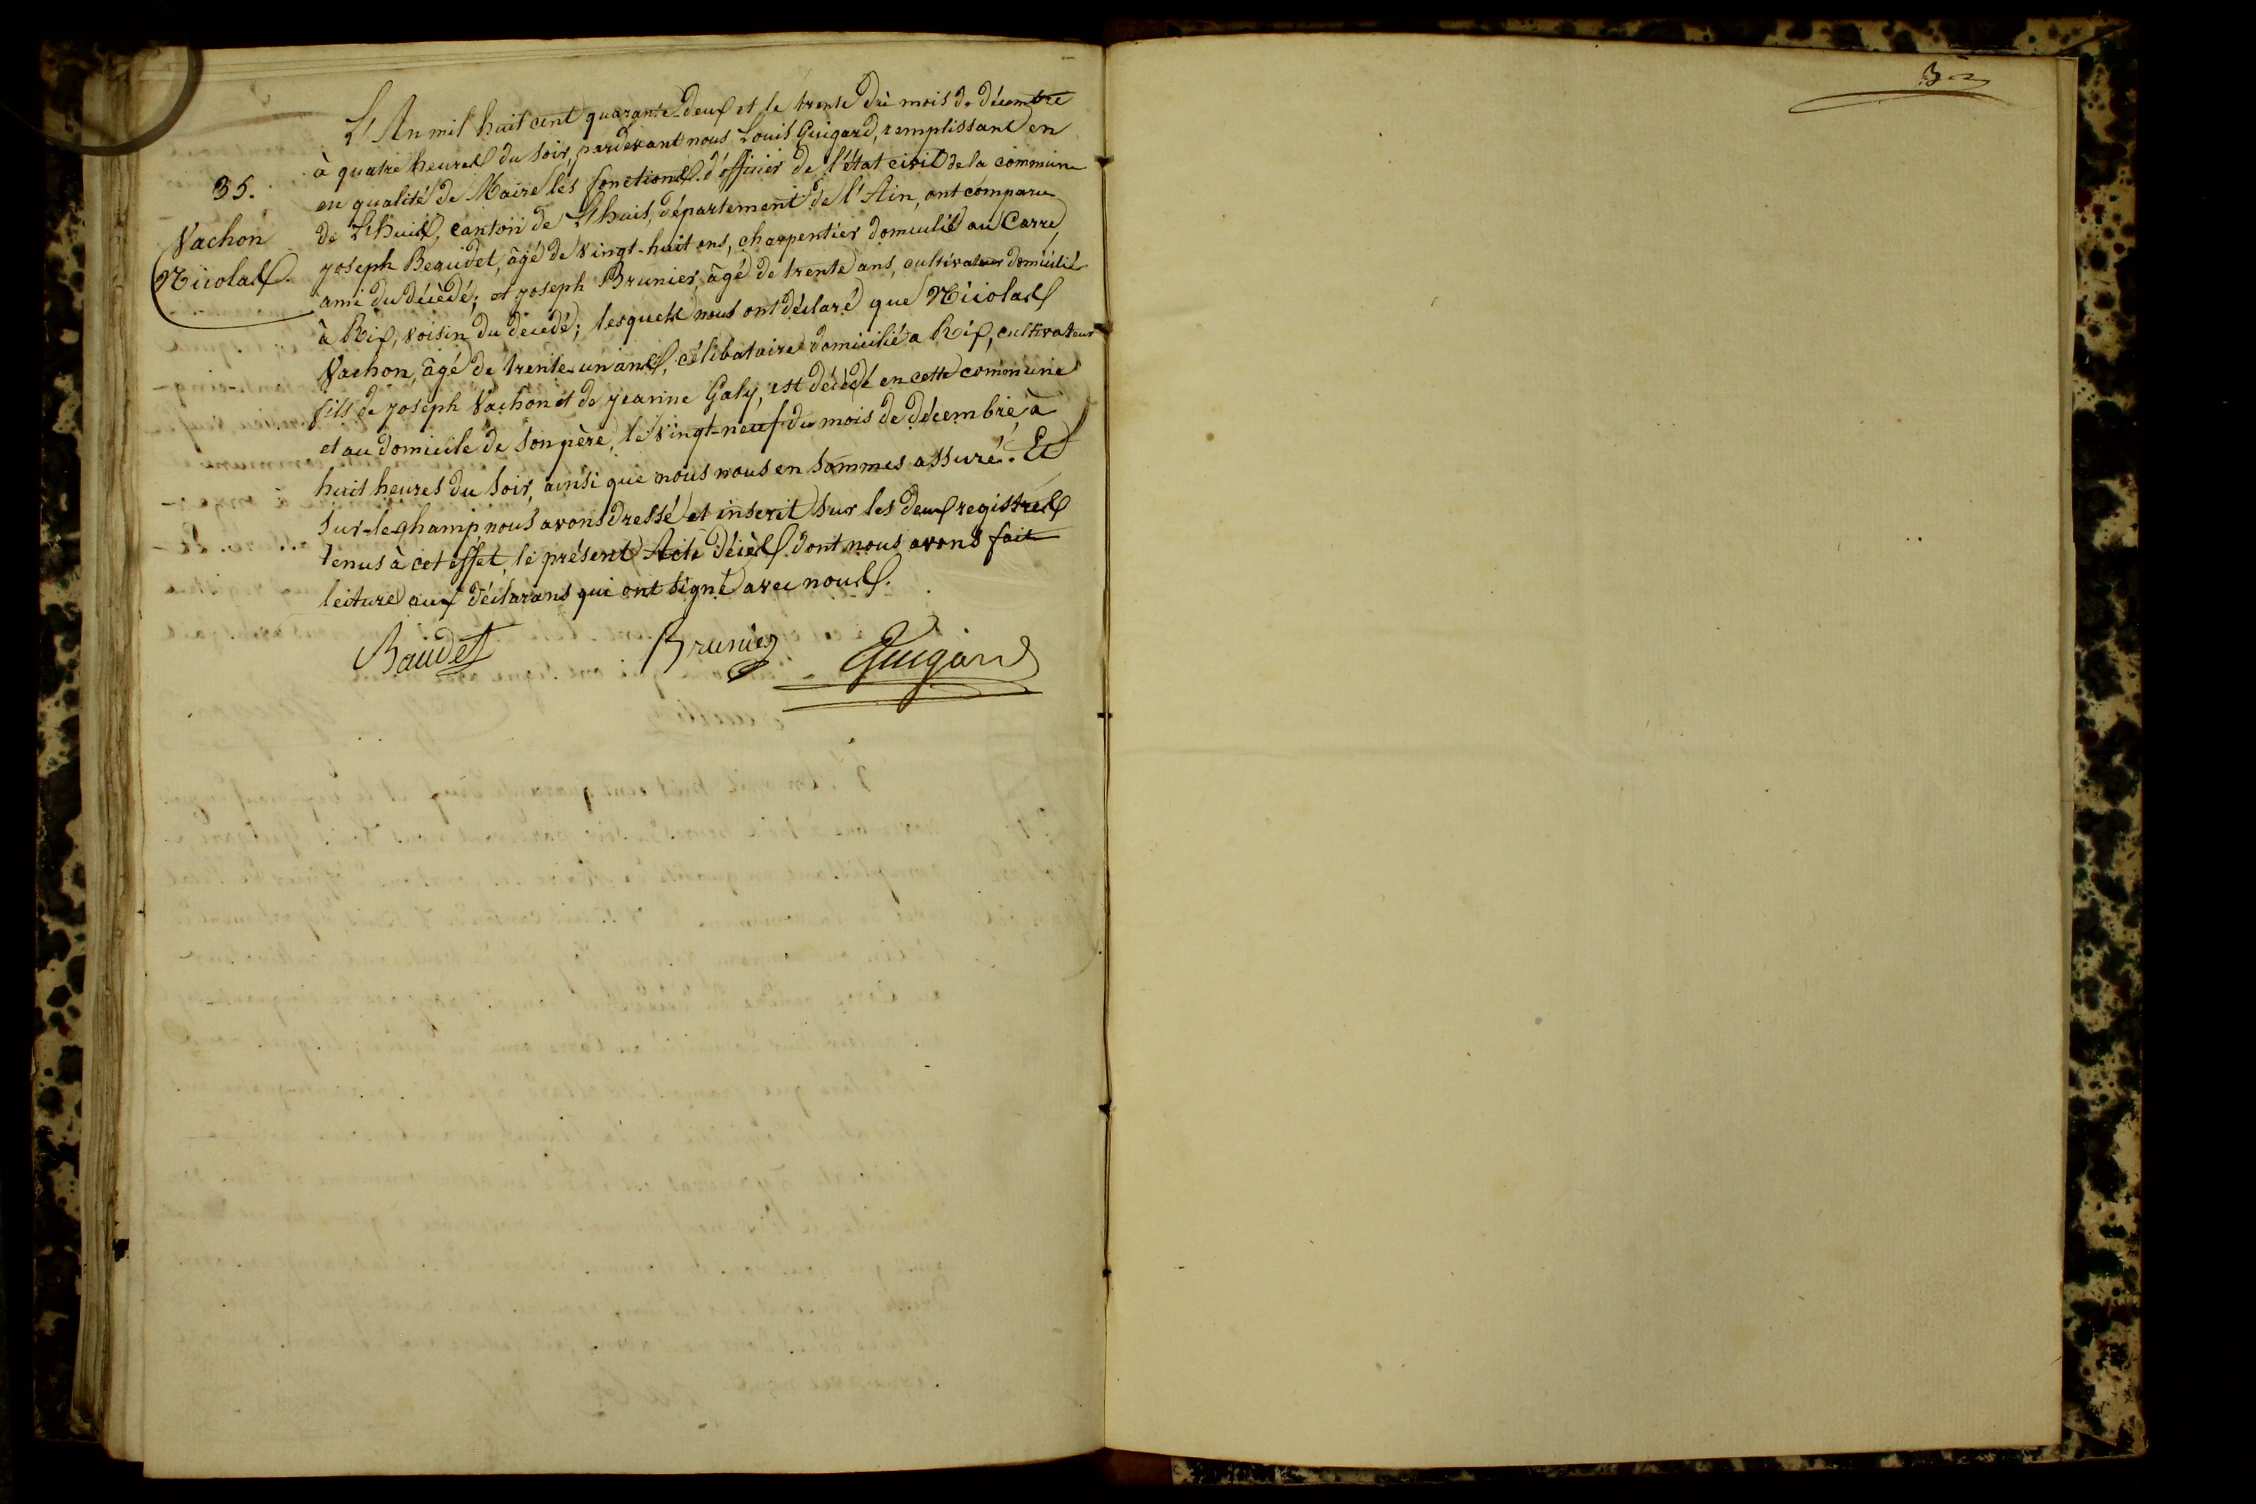 L'An mil huit cent quarante-deux et le trente du mois de décembre
à quatre heures du soir, pardevant nous Louis Guigard, remplissant en
en qualité de Maire les fonctions d'officier de l'état civil de la commune
de Lhuis, canton de Lhuis, département de l'Ain, ont comparu
Joseph Beaudet, âgé de vingt-huit ans, charpentier domicilié au Carre,
ami du décédé; et Joseph Brunier, âgé de trente ans, cultivateur domicilié
à Rix, voisin du décédé; lesquels nous ont déclaré que Nicolas
Vachon, âgé de trente un ans, célibataire domicilié a Rix, cultivateur
fils de Joseph Vachon et de Jeanne Galy, est décédé en cette commune
et au domicile de son père, le vingt-neuf du mois de décembre, à
huit heures du soir, ainsi que nous nous en sommes assuré. Et
sur-le-champ, nous avons dressé et inscrit sur les deux registres
tenus à cet effet, le présent Acte décès dont nous avons fait
lecture aux déclarans qui ont signé avec nous.
35.
Vachon
Nicolas.
Baudet Brunier Guigard